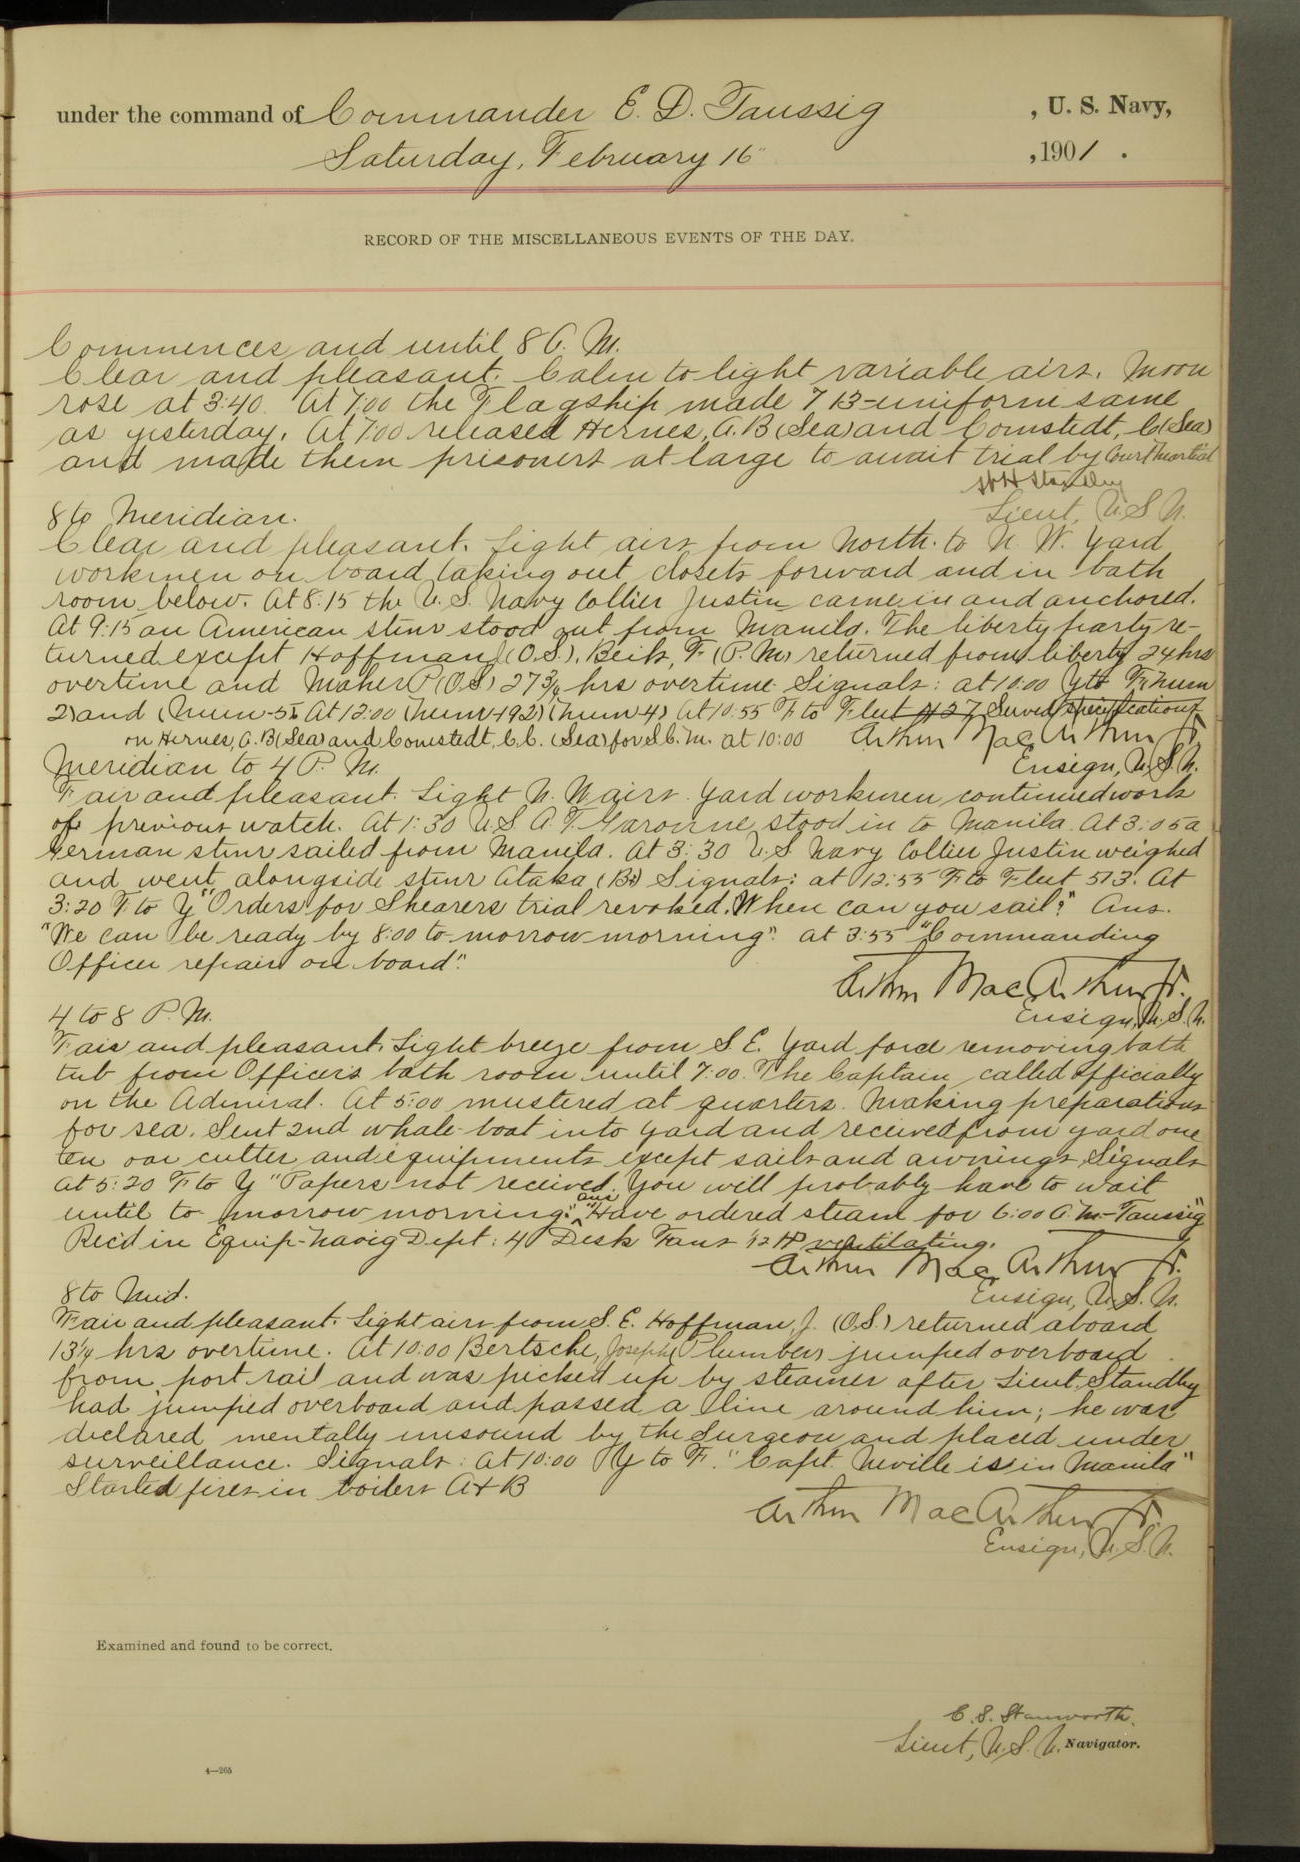 under the command of Commander E. D. Taussig , U. S. Navy,
Saturday, February 16" , 1901 .
RECORD OF THE MISCELLANEOUS EVENTS OF THE DAY.
Commences and until 8 A. M.
Clear and pleasant. Calm to light variable airs. Moon
rose at 3:40. At 7:00 the Flagship made 713-uniform same
as yesterday. At 7:00 released Hernes, A.B (Sea) and Comstedt, C (Sea)
and made them prisoners at large to await trial by Court Martial
Lieut, U.S.N.
8 to Meridian.
Clear and pleasant. Light airs from North to N. W. Yard
workmen on board taking out closets forward and in bath
room below. At 8:15 the U. S. Navy Collier Justin came in and anchored.
At 9:15 an American stmr stood out from Manila. The liberty party re-
turned except Hoffman J (O.S.). Beils, F (P.M) returned from liberty 24 hrs
overtime and Maher P (O.S) 27 3/4 hrs overtime. Signals: at 10:00 Y to F (num
2) and (Num-5 At 12:00 (num-192) (num 4) At 10:55 F to Fleet 427 Served specifications
on Hernes, A.B (Sea) and Comstedt, C.C. (Sea) for S.C.M. at 10:00 Arthur MacArthur Jr.
Ensign, U.S.N.
Meridian to 4 P. M.
Fair and pleasant. Light N. W airs. Yard workmen continued work
of previous watch. At 1:30 U S A T Garonne stood in to Manila. At 3:05 a
German stmr sailed from Manila. At 3:30 U.S Navy Collier Justin weighed
and went alongside stmr Ataka (Br) Signals: at 12:55 F to Fleet 513. At
3:20 F to Y "Orders for Shearers trial revoked. When can you sail?" Ans.
"We can be ready by 8:00 to-morrow morning". At 3:55 "Commanding
Officer repair on board".
Arthur MacArthur Jr.
Ensign, U.S.N.
4 to 8 P. M.
Fair and pleasant. Light breeze from S. E. Yard force removing bath
tub from Officer's bath room until 7:00. The Captain called officially
on the Admiral. At 5:00 mustered at quarters. Making preparations
for sea. Sent 2nd whale-boat into yard and received from yard one
ten oar cutter and equipments except sails and awnings. Signals
at 5:20 F to Y "Papers not received. You will probably have to wait
until to-morrow morning." ans "Have ordered steam for 6:00 A.M-Taussig"
Rec'd in Equip-Navig Dept: 4 Desk Fans 1/12 HP ventilating.
Arthur MacArthur Jr.
Ensign, U.S.N.
8 to Mid.
Fair and pleasant. Light airs from S. E. Hoffman, J. (O.S.) returned aboard
13 1/4 hrs overtime. At 10:00 Bertsche, Joseph (Plumber) jumped overboard
from port rail and was picked up by steamer after Lieut. Standley
had jumped overboard and passed a line around him; he was
declared mentally unsound by the Surgeon and placed under
surveillance. Signals: at 10:00 Y to F. "Capt. Neville is in Manila"
Started fires in boilers A & B
Arthur MacArthur Jr.
Ensign, U.S.N.
Examined and found to be correct.
C. S. Stanworth.
Lieut, U.S.N. Navigator.
4—265